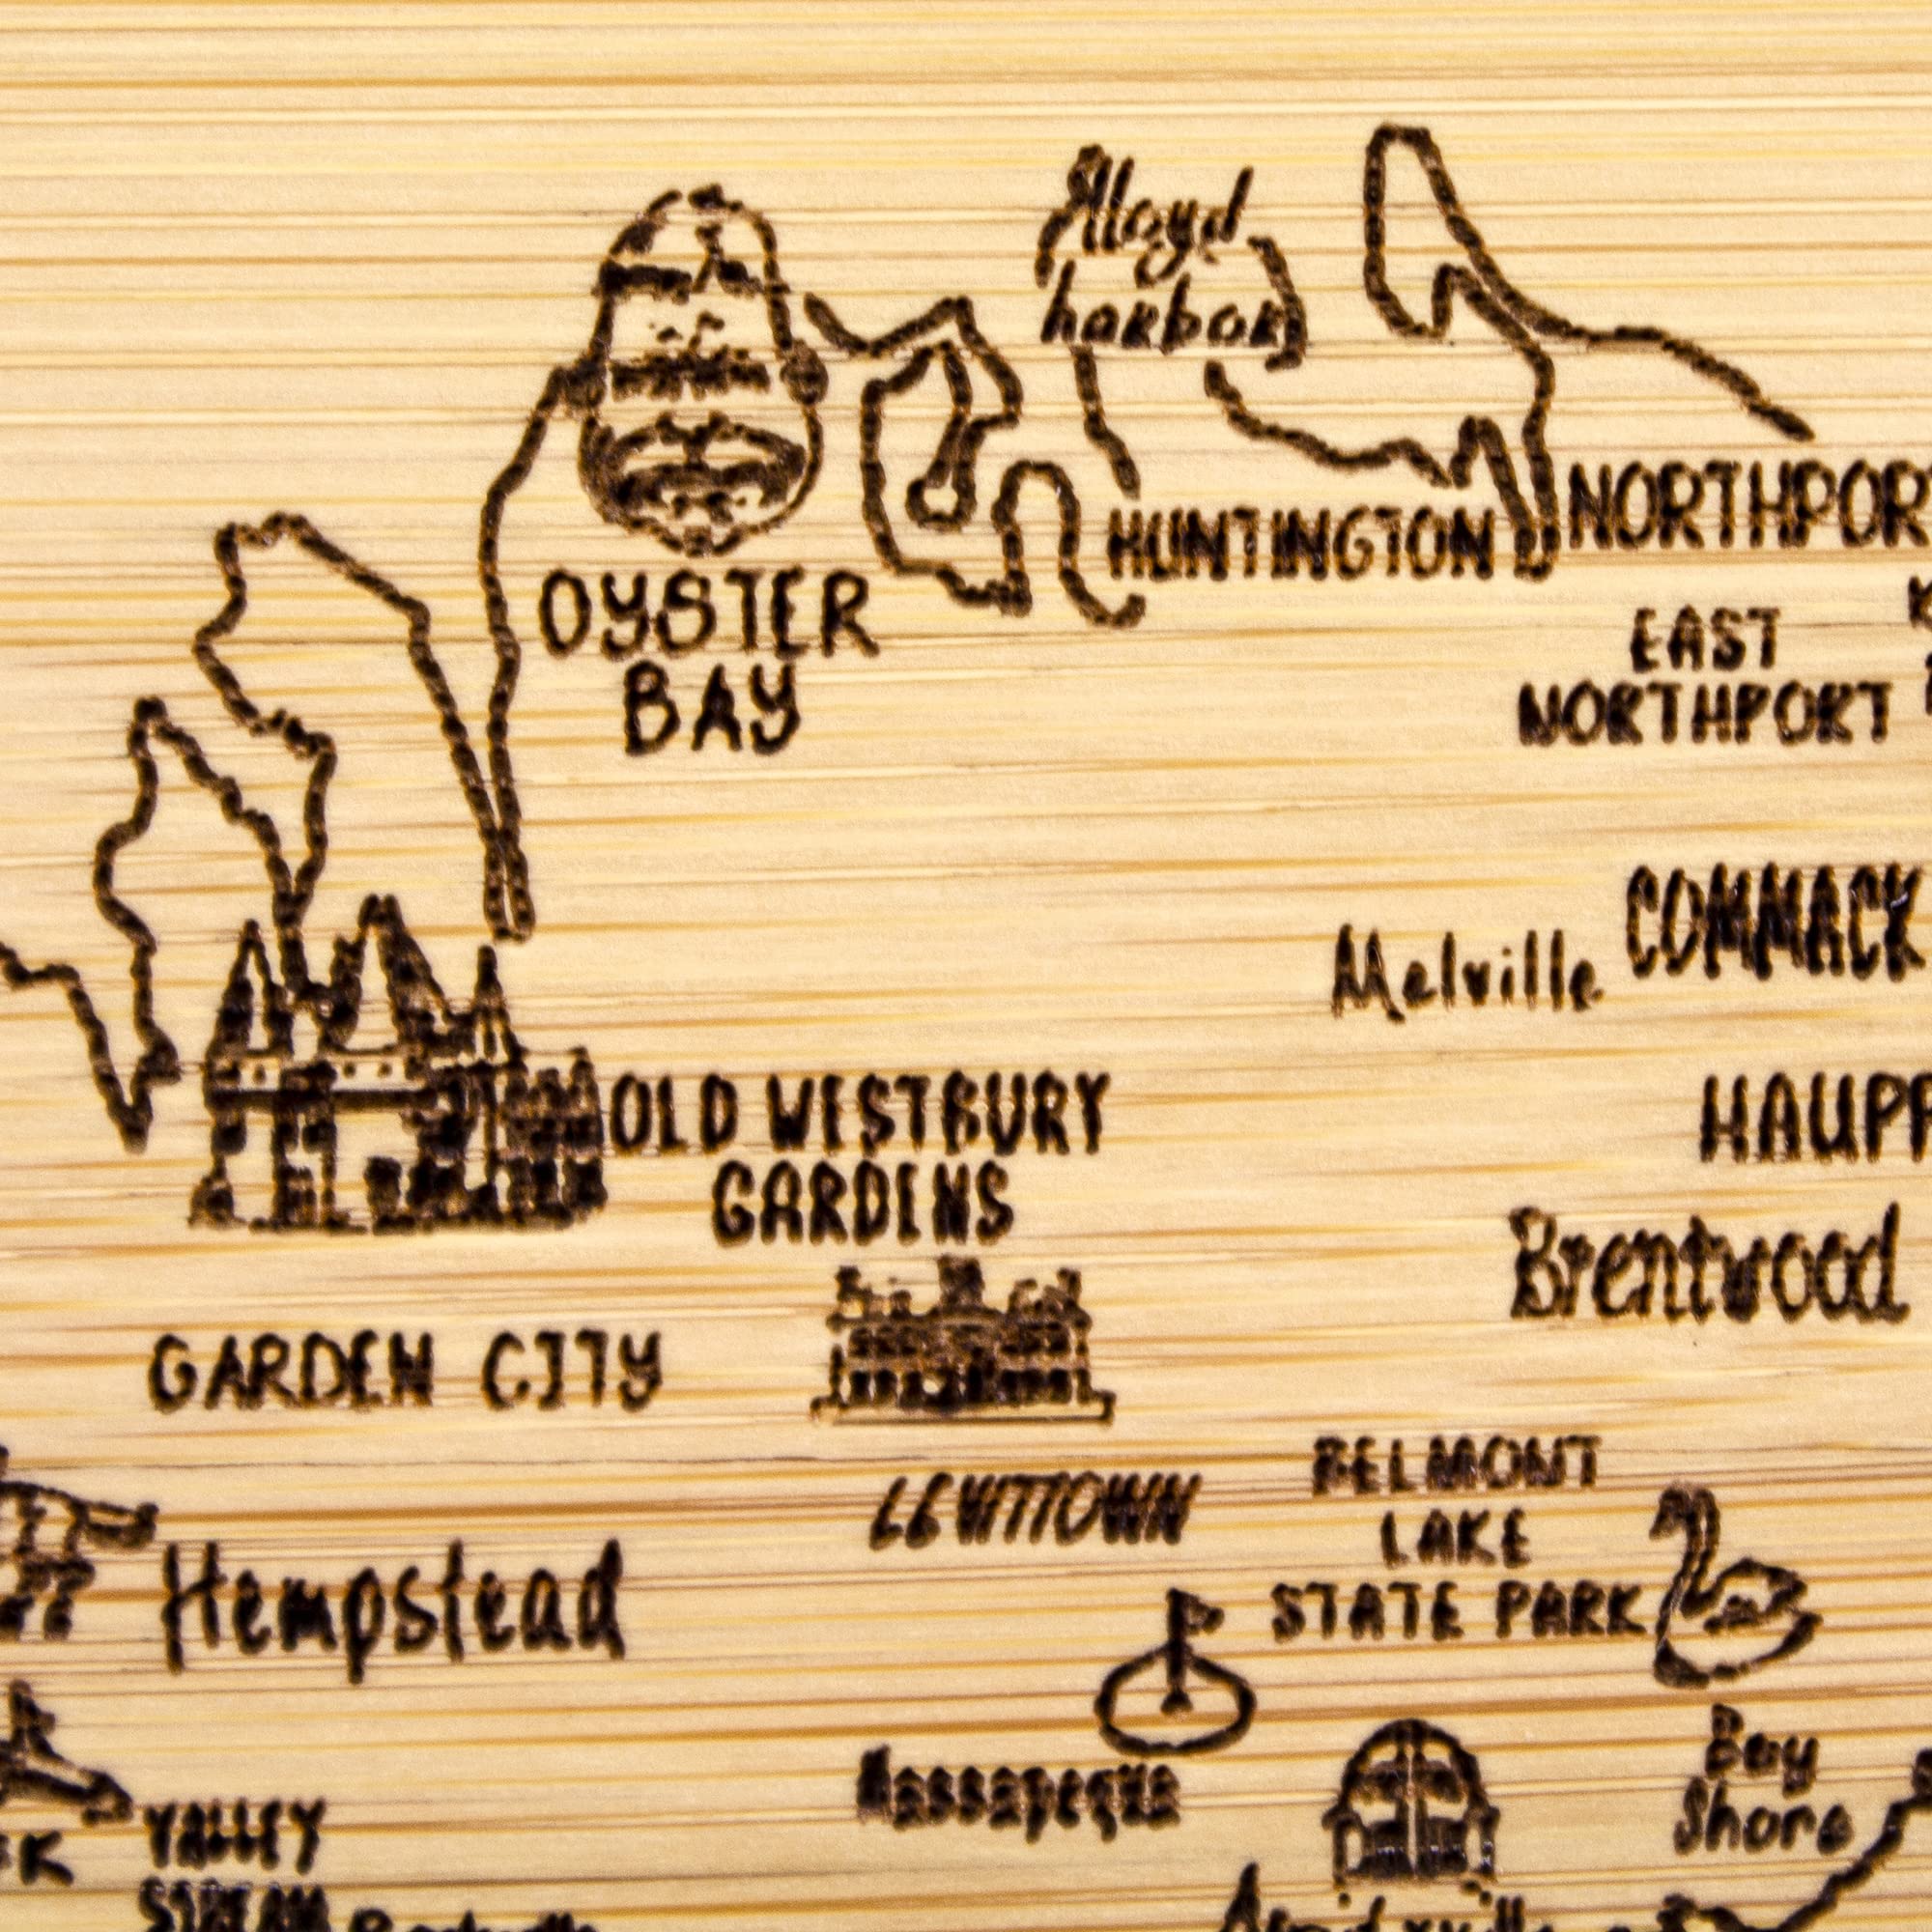 Lloyd
harbor
HUNTINGTON
NORTHPOR
OYSTER
BAY
EAST
NORTHPORT
COMMACK
Melville
OLD WESTBURY
GARDENS
HAUPP
Brentwood
GARDEN CITY
BELMONT
LAKE
STATE PARK
LEVITTOWN
Hempstead
Massapequa
Bay
Shore
VALLEY
STREAM
K